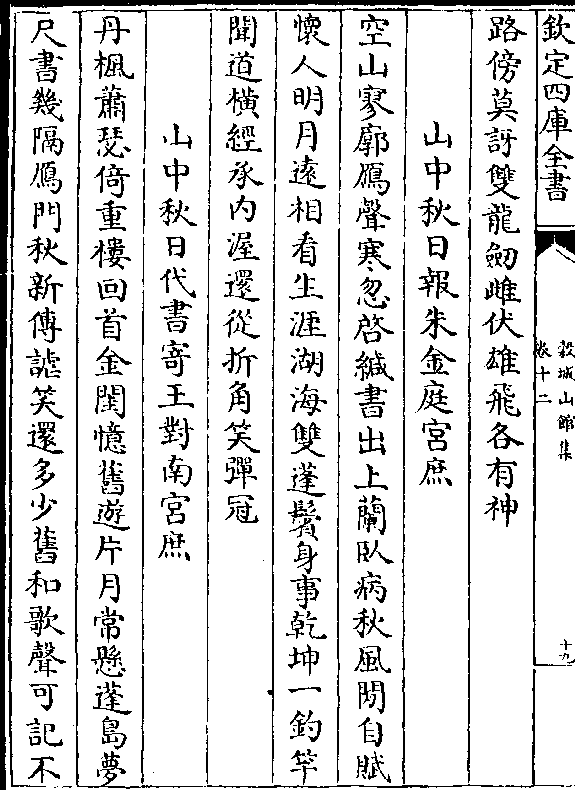 欽定四庫全書
穀城山館集
卷十二
十九
路傍莫訝雙龍劒雌伏雄飛各有神
山中秋日報朱金庭宮庶
空山寥廓鴈聲寒忽啓緘書出上蘭臥病秋風閒自賦
懷人明月遠相看生涯湖海雙蓬鬢身事乾坤一釣竿
聞道橫經承内渥還從折角笑彈冠
山中秋日代書寄王對南宮庶
丹楓蕭瑟倚重樓回首金閨憶舊遊片月常懸蓬島夢
尺書幾隔鴈門秋新傳謔笑還多少舊和歌聲可記不